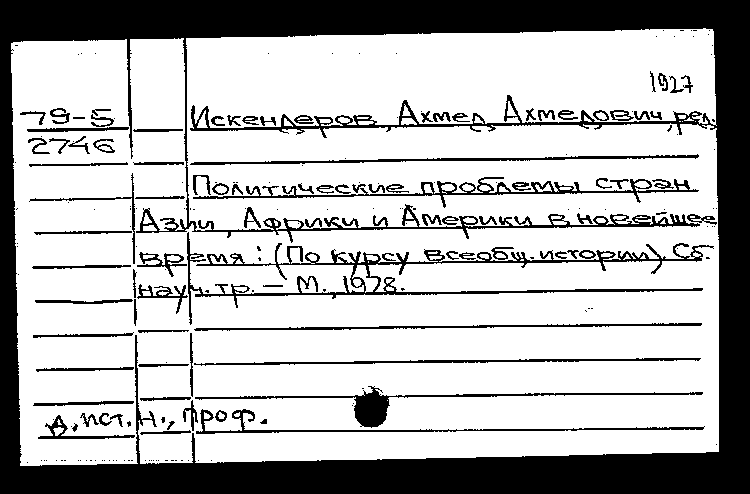 1927
79-5 Искендеров, Ахмед Ахмедович, ред.
2746
Политические проблемы стран
Азии, Африки и Америки в новейшее
время: (По курсу всеобщ. истории). Сб.
науч. тр. – М., 1978.
д. ист. н., проф.